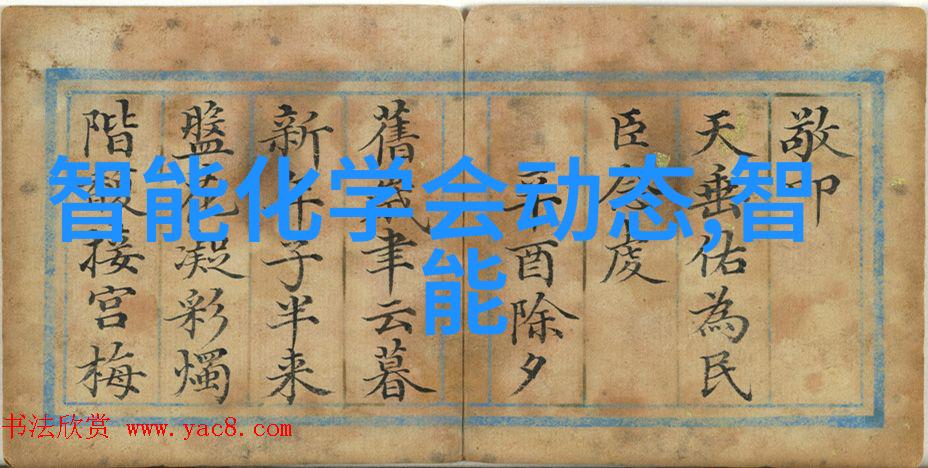 智能化学会动态,智
能
敬
天垂佑為民
臣念虔
辛酉除夕
舊歲聿云暮
新年子半来
盤花凝彩燭
階馥接宫梅
书法欣赏 www.yac8.com